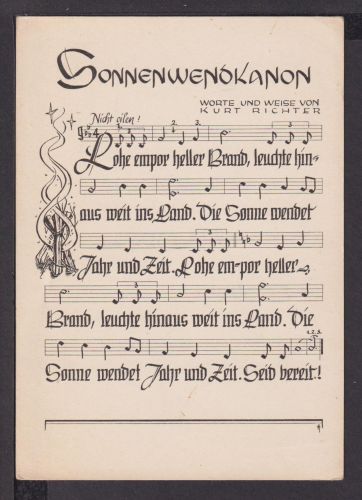 SONNENWENDKANON
WORTE UND WEISE VON
KURT RICHTER
Nicht eilen!
1. 2. 3.
Lohe empor heller Brand, leuchte hin-
aus weit ins Land. Die Sonne wendet
Jahr und Zeit. Lohe em-por heller
Brand, leuchte hinaus weit ins Land. Die
Sonne wendet Jahr und Zeit. Seid bereit!